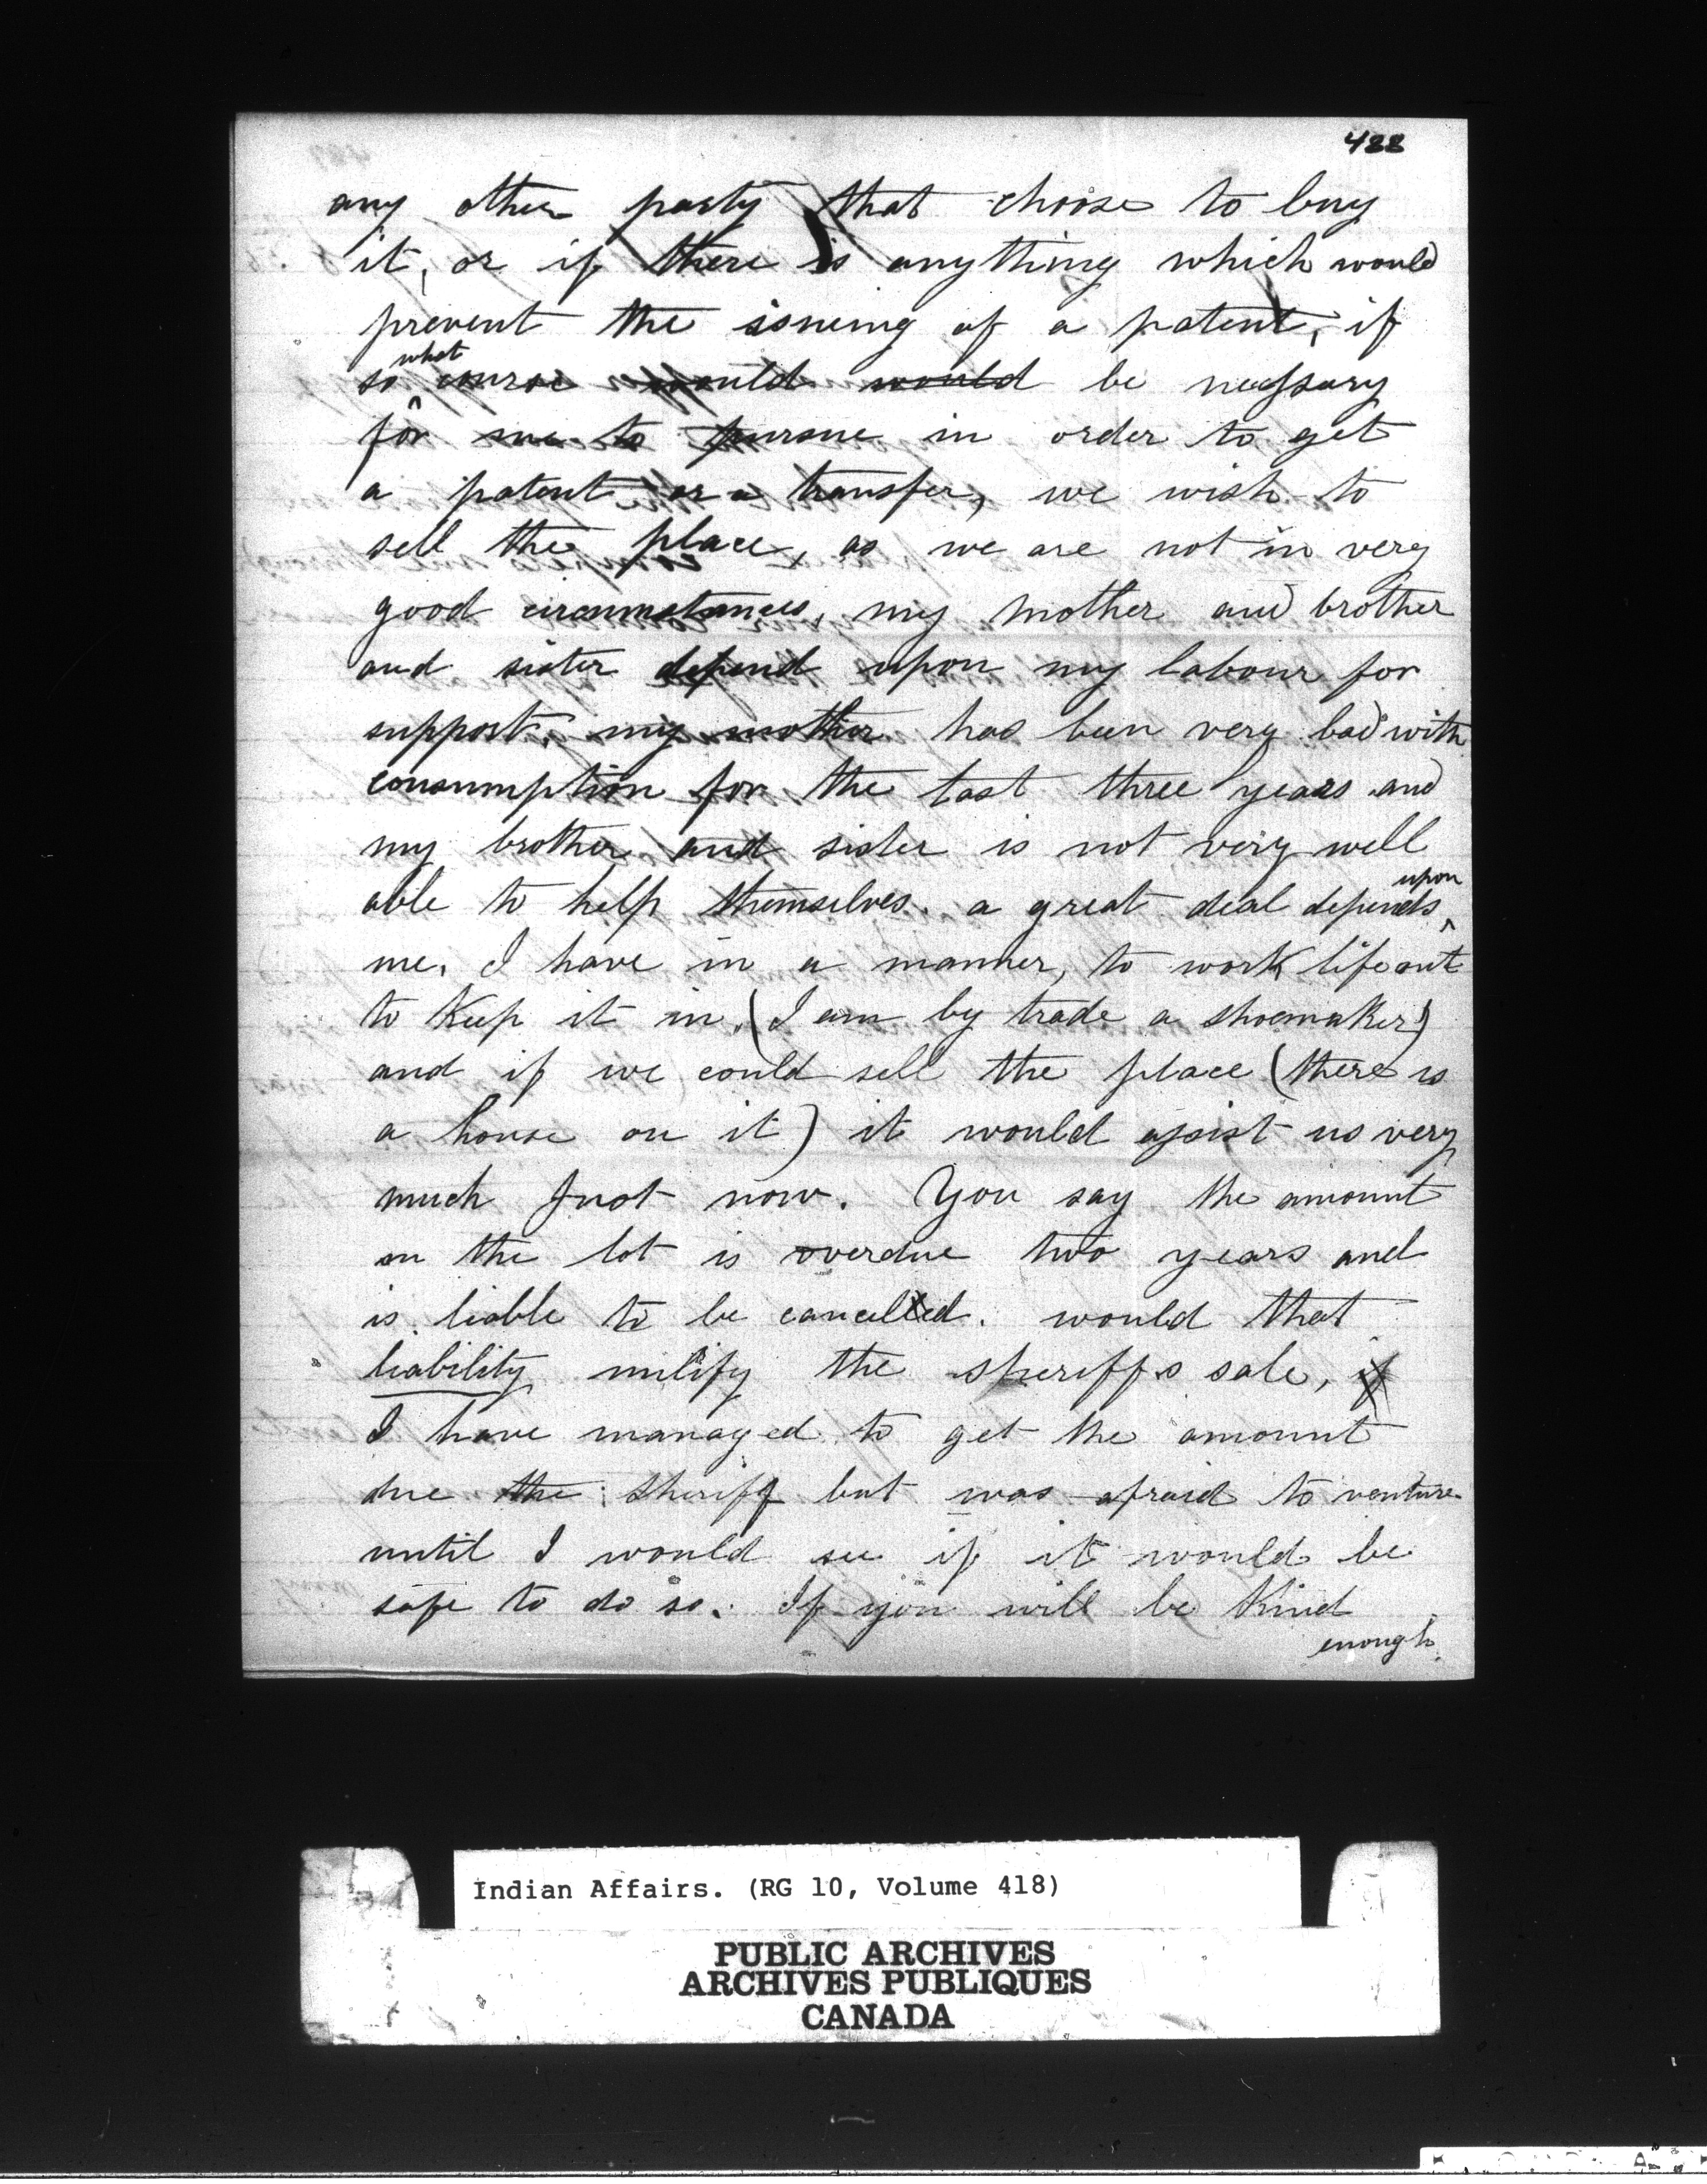 488
any other party that choose to buy
it, or if there is anything which would
prevent the issueing of a patent, if
so what course would would be necessary
for me to pursue in order to get
a patent or a transfer, we wish to
sell the place, as we are not in very
good circumstances, my mother and brother
and sister depend upon my labour for
support, my mother has been very bad with
consumption for the last three years and
my brother and sister is not very well
able to help themselves. a great deal depends upon
me. I have in a manner, to work life out
to keep it in. (I am by trade a shoemaker)
and if we could sell the place (there is
a house on it) it would assist us very
much Just now. You say the amount
on the lot is overdue two years and
is liable to be cancelled. would that
liability nulify the sheriffs sale, if
I have managed to get the amount
due the sheriff but was afraid to venture
until I would see if it would be
safe to do so. If you will be kind
enough
Indian Affairs. (RG 10, Volume 418)
PUBLIC ARCHIVES
ARCHIVES PUBLIQUES
CANADA